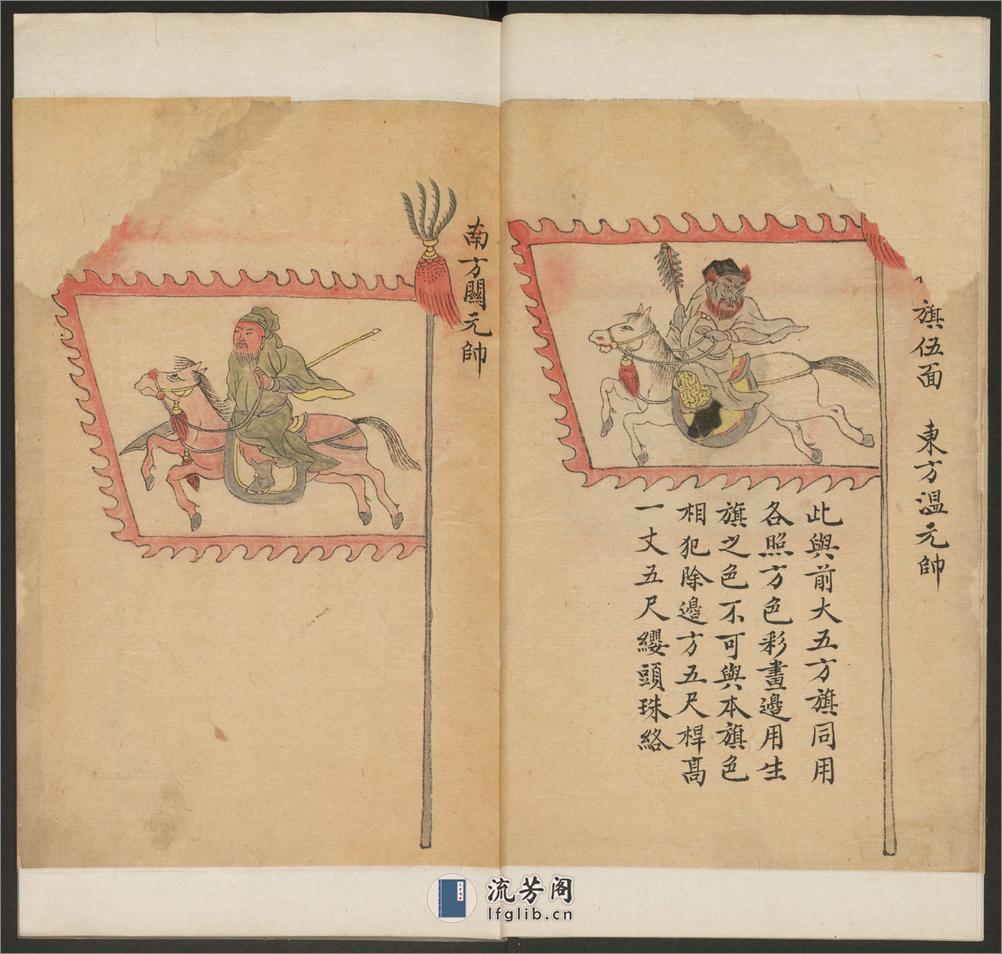 旗伍面　東方溫元帥
此與前大五方旗同用
各照方色彩畫邊用生
旗之色不可與本旗色
相犯除邊方五尺桿高
一丈五尺纓頭珠絡
南方關元帥
流芳阁
lfglib.cn